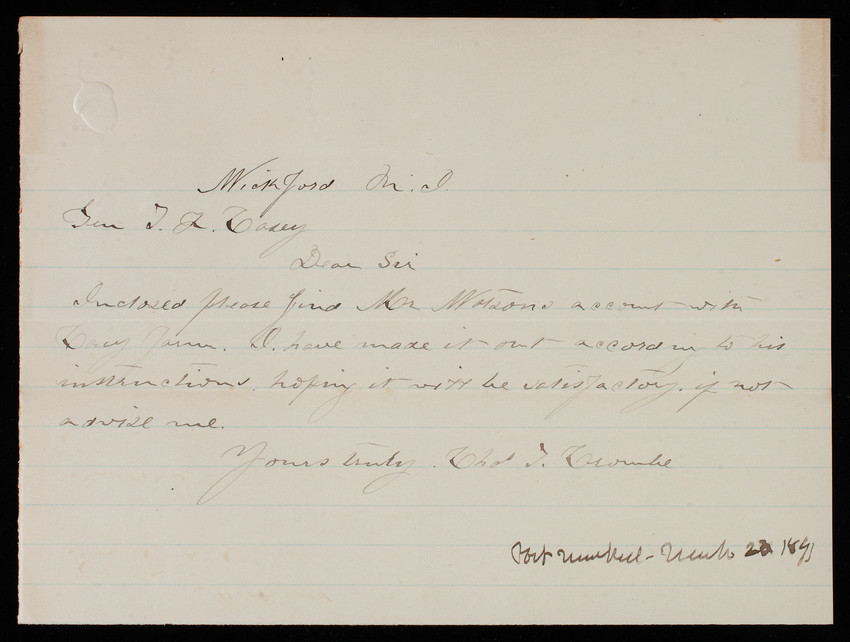 Wickford R.I.
Gen T. L. Casey
Dear Sir
Inclosed please find Mr Watsons account with
Casey farm. I have made it out according to his
instructions, hoping it will be satisfactory. if not
advise me.
Yours truly. Chas T. Crombe
Post marked - March 23 1891